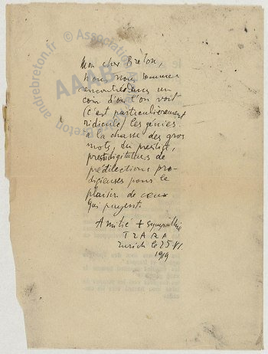 Mon cher Breton,
nous nous sommes
rencontrés dans un
coin d'où l'on voit
(c'est particulièrement
ridicule) les génies
à la chasse des gros
mots, du prestige,
prestidigitateurs de
prédilections pro-
digieuses pour le
plaisir de ceux
qui payent.
Amitié + sympathie
TZARA
Zurich le 25 VI
1919
© Association
andrebreton.fr